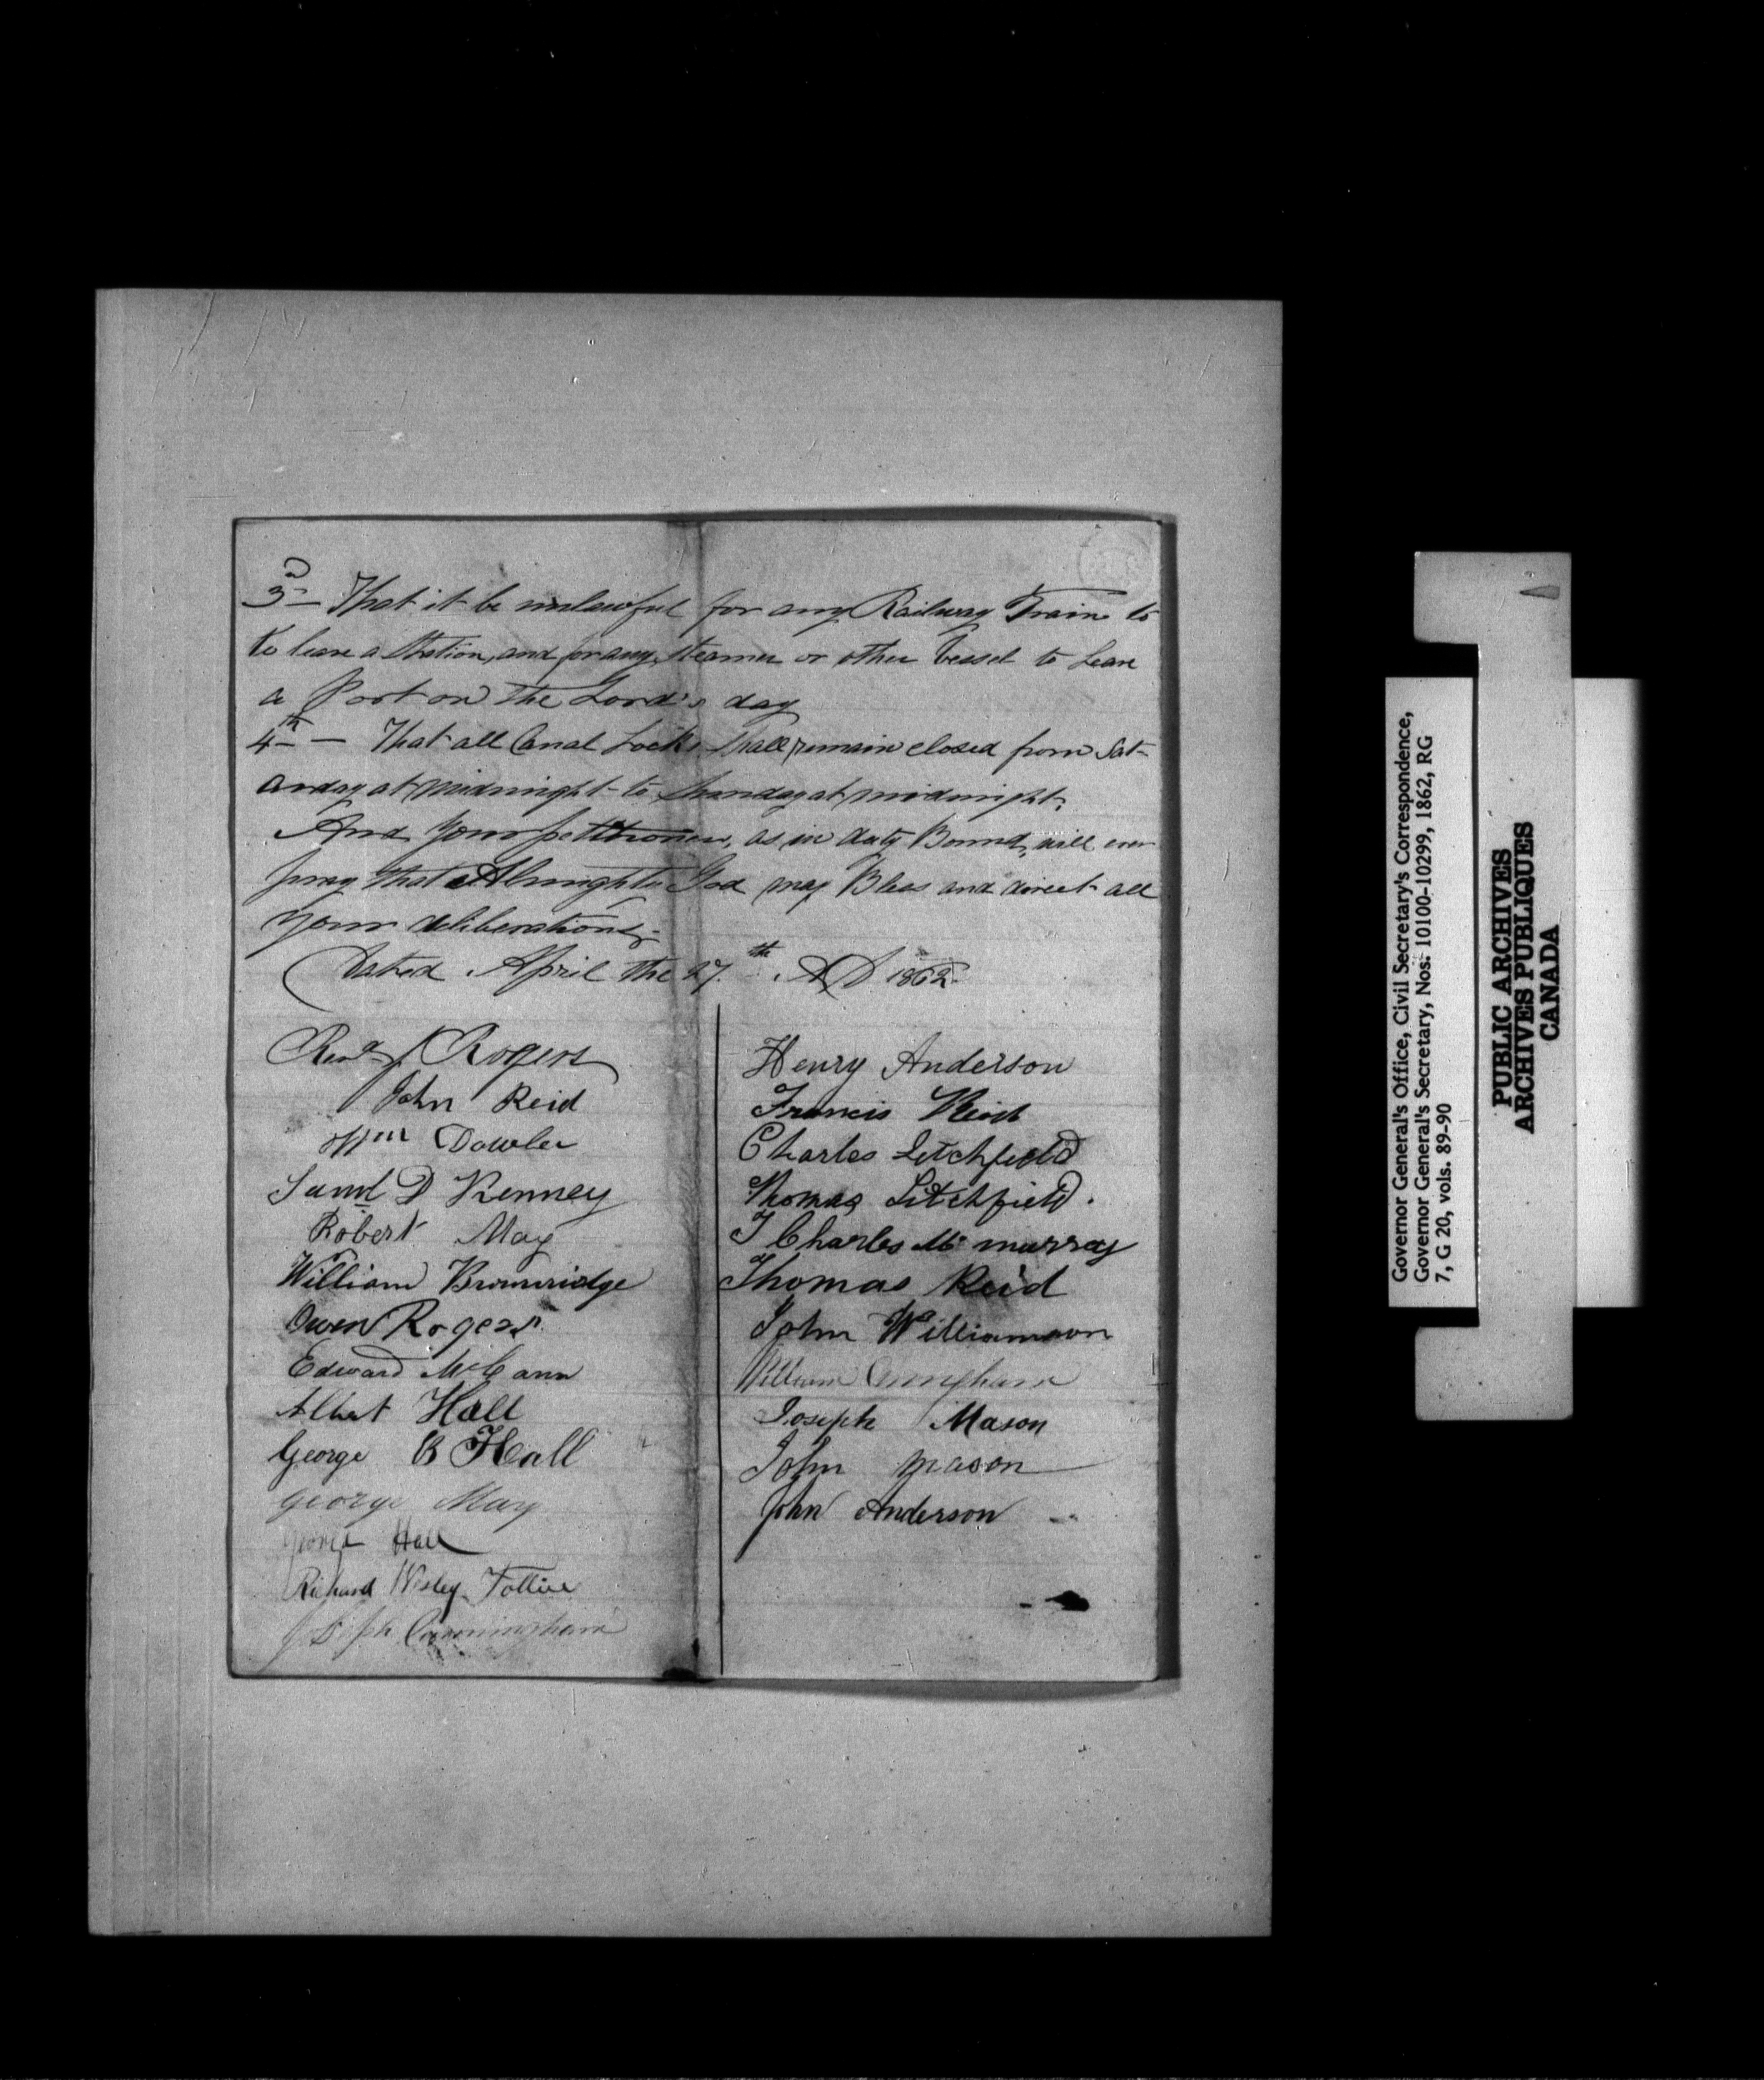 3d — That it be unlawful for any Railway Train to
to leave a Station, and for any Steamer or other Vessel to Leave
a Port on the Lord's day
4th — That all Canal Locks Shall remain closed from Sat-
urday at midnight to Sunday at midnight.
And Your petitioners, as in duty Bound, will ever
pray that Almighty God may Bless and direct all
your deliberations.
Dated April the 27th AD 1862
Revd J Rogers
John Reid
Wm Dowler
Saml D Kenney
Robert May
William Brownridge
Owen Rogers
Edward McCann
Albert Hall
George B Hall
George May
George Hall
Richard Wesley
Joseph Cunningham
Henry Anderson
Francis Reid
Charles Litchfield
Thomas Litchfield.
T Charles Mc murray
Thomas Reid
John Williamson
William
Joseph Mason
John Mason
John Anderson
Governor General's Office, Civil Secretary's Correspondence,
Governor General's Secretary, Nos: 10100-10299, 1862, RG
7, G 20, vols. 89-90
PUBLIC ARCHIVES
ARCHIVES PUBLIQUES
CANADA